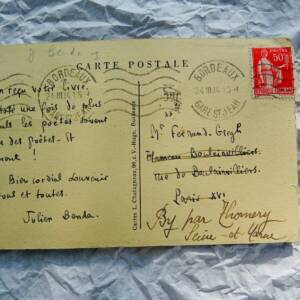 8 Benda J
CARTE POSTALE
BORDEAUX
24 III 34
GARE ST JEAN
BORDEAUX
24 III 34
GARE ST JEAN
50c
reçu votre livre.
une fois de plus
les poètes doivent
des poètes. Et
Bien cordial souvenir
et toutes.
Julien Benda.
Cartes L. Chatagneau, 90, c. V.-Hugo, Bordeaux
Mr Fernand Gregh
Hameau Boulainvilliers
rue de Boulainvilliers
Paris XVI
By par Thomery
Seine-et-Marne